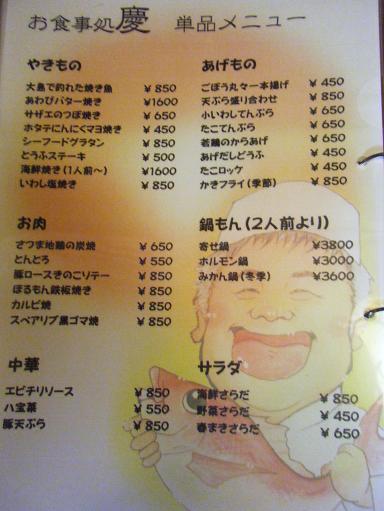 お食事処 慶 単品メニュー
やきもの
大島で釣れた焼き魚 ¥850
あわびバター焼き ¥1600
サザエのつぼ焼き ¥650
ホタテにんにくマヨ焼き ¥450
シーフードグラタン ¥850
とうふステーキ ¥500
海鮮焼き(1人前〜) ¥1600
いわし塩焼き ¥850
あげもの
ごぼう丸々一本揚げ ¥450
天ぷら盛り合わせ ¥850
小いわしてんぷら ¥650
たこてんぷら ¥650
若鶏のからあげ ¥650
あげだしどうふ ¥450
たこロッケ ¥450
かきフライ(季節) ¥850
お肉
さつま地鶏の炭焼 ¥650
とんとろ ¥550
豚ロースきのこソテー ¥850
ほるもん鉄板焼き ¥850
カルビ焼 ¥850
スペアリブ黒ゴマ焼 ¥850
鍋もん(2人前より)
寄せ鍋 ¥3800
ホルモン鍋 ¥3000
みかん鍋(冬季) ¥3600
中華
エビチリソース ¥850
八宝菜 ¥550
豚天ぷら ¥850
サラダ
海鮮さらだ ¥850
野菜さらだ ¥450
春まきさらだ ¥650